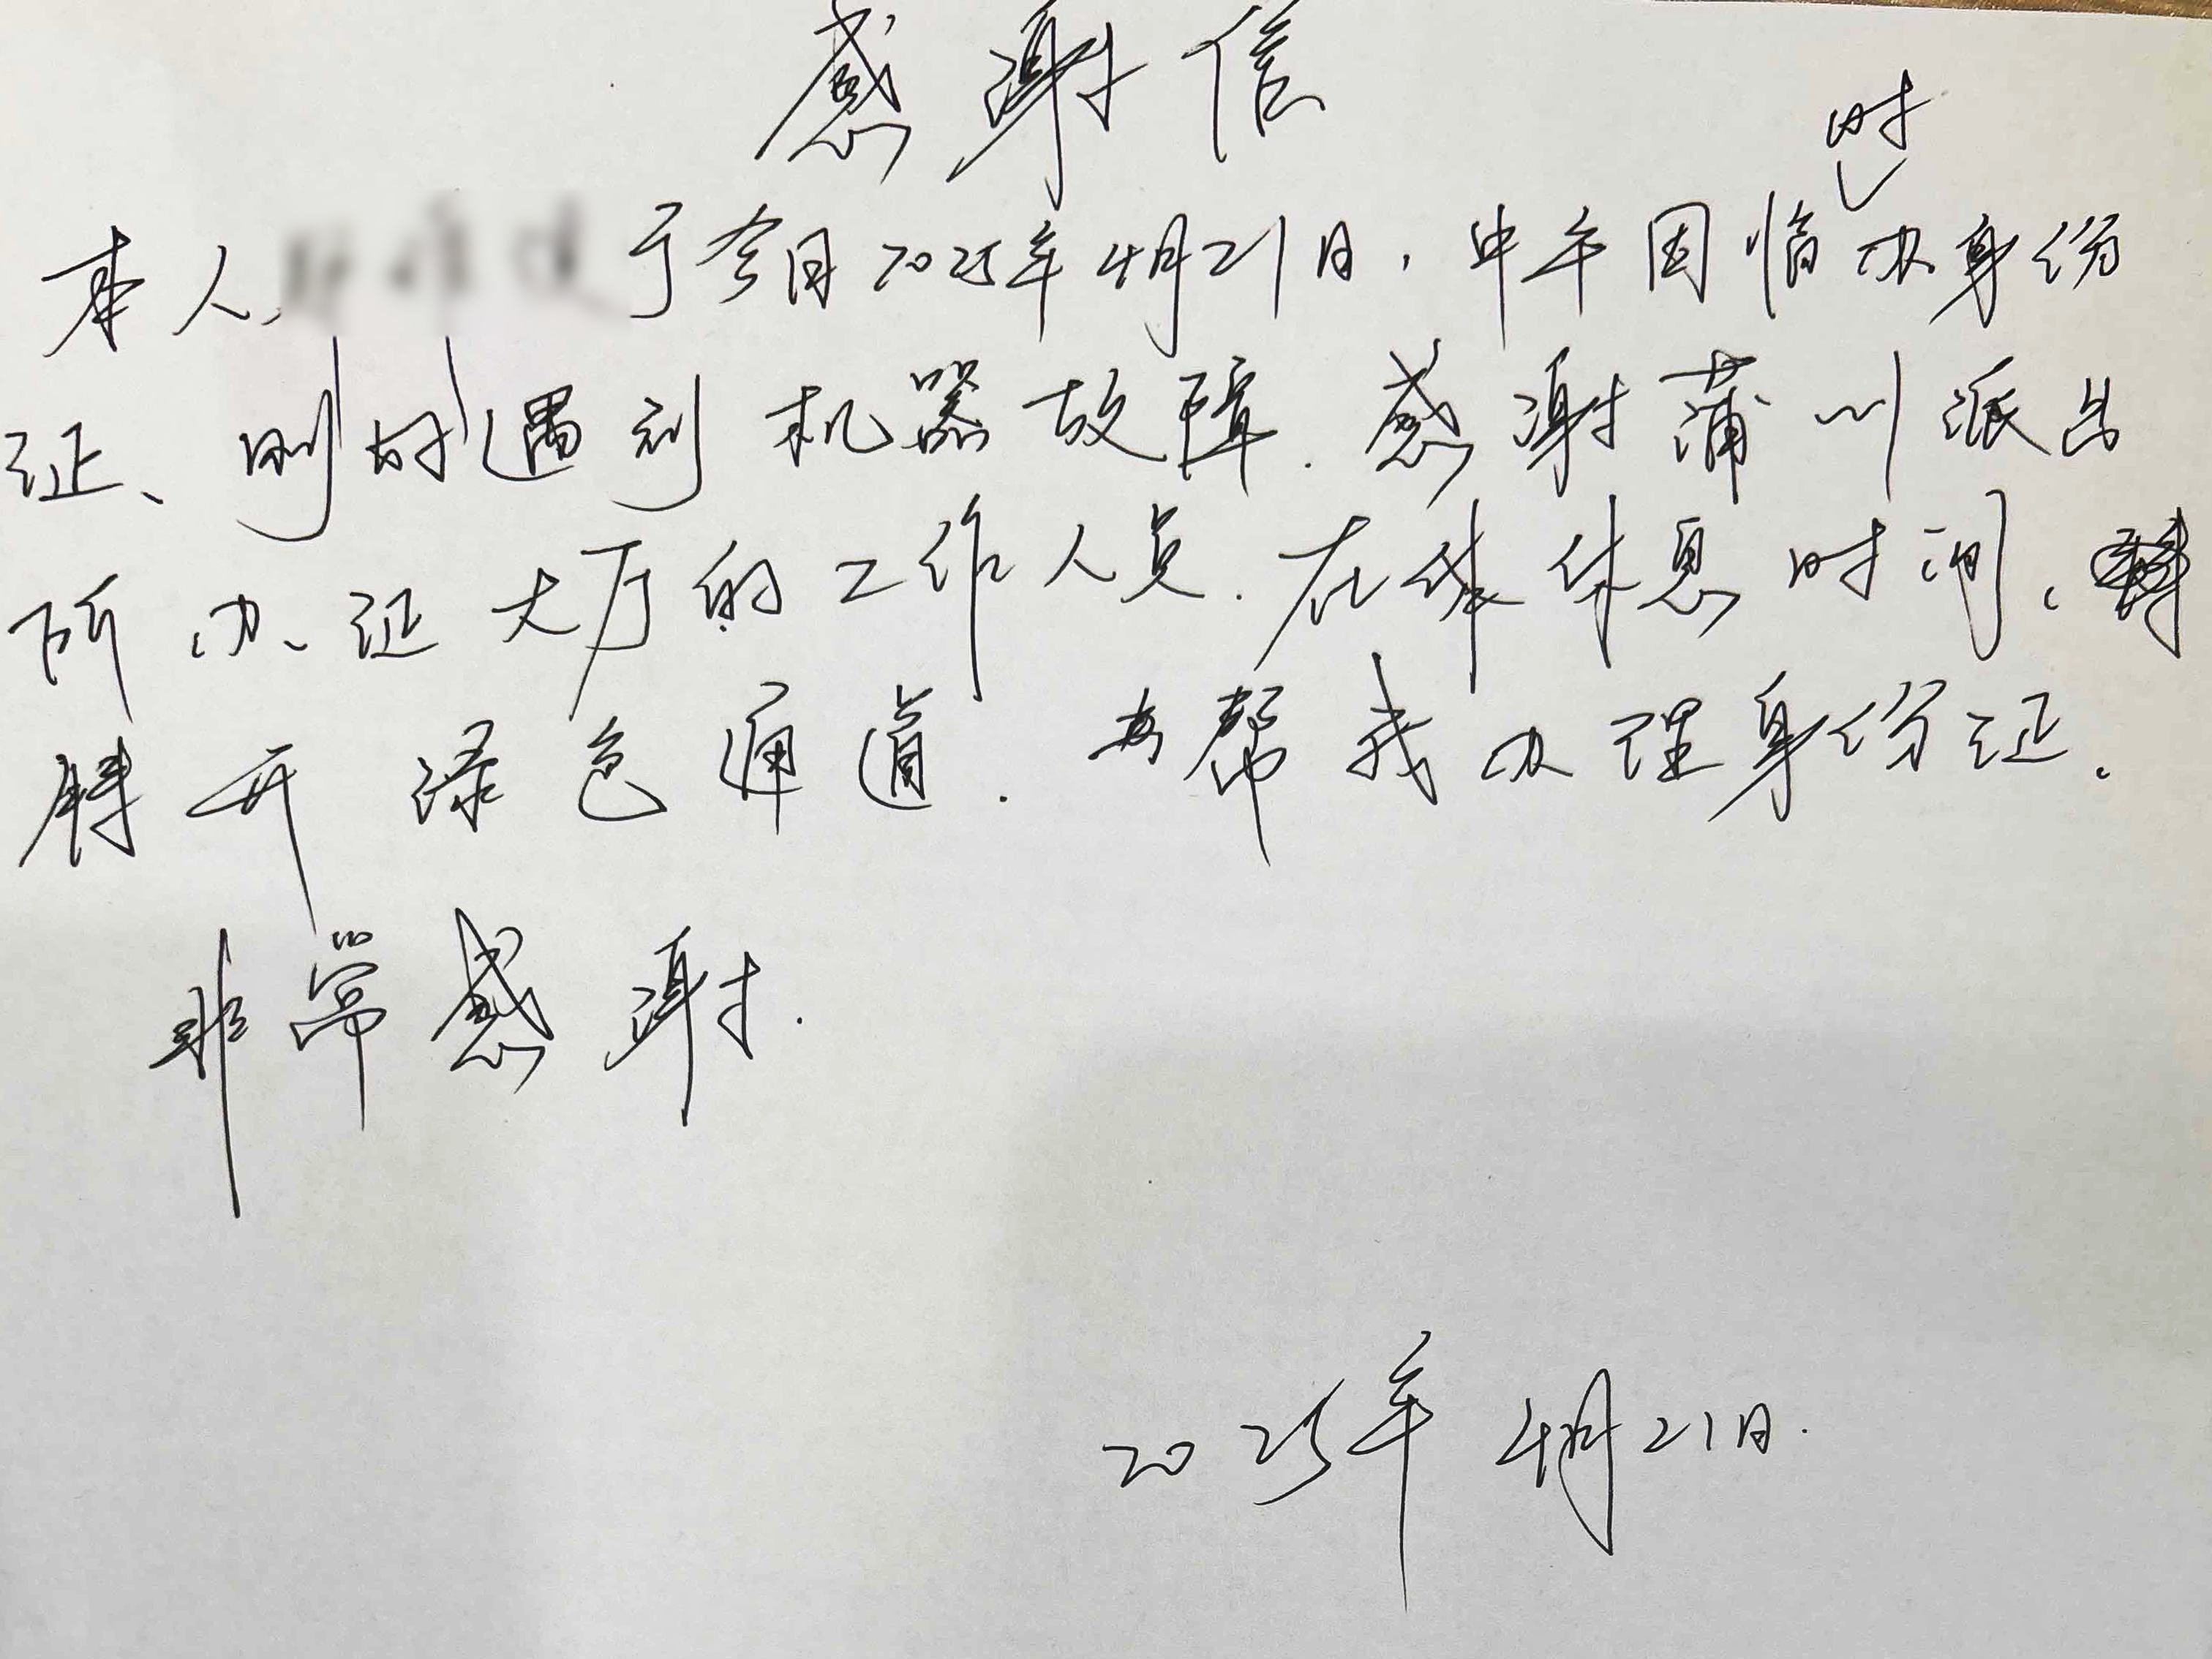 感谢信
本人 于今日2025年4月21日，中午因临时办身份
证、刚好遇到机器故障.感谢蒲川派出
所办证大厅的工作人员.在休息时间、
特开绿色通道.为帮我办理身份证.
非常感谢.
2025年4月21日.